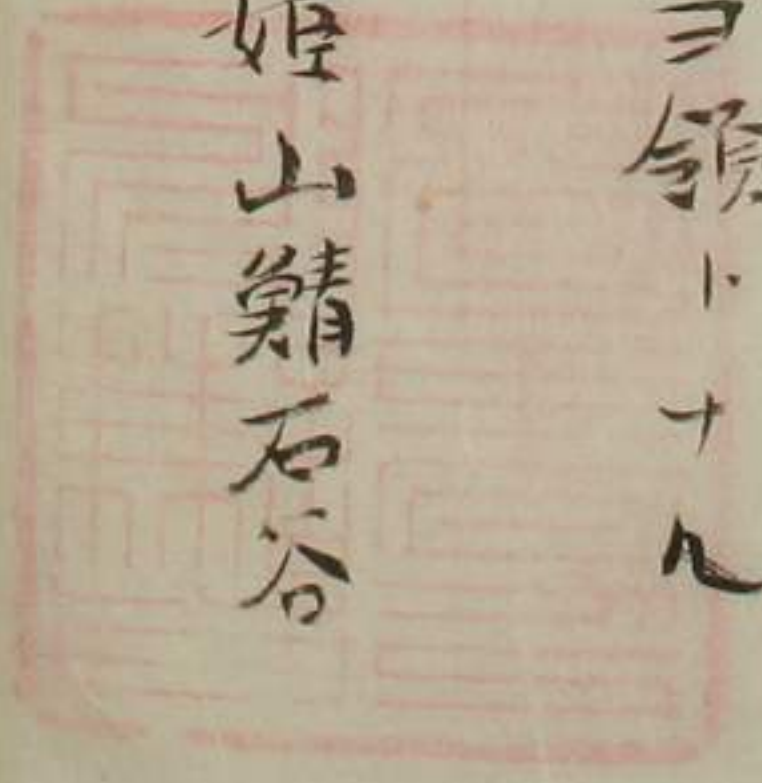 ヨ領トナル
姫山鯖石谷